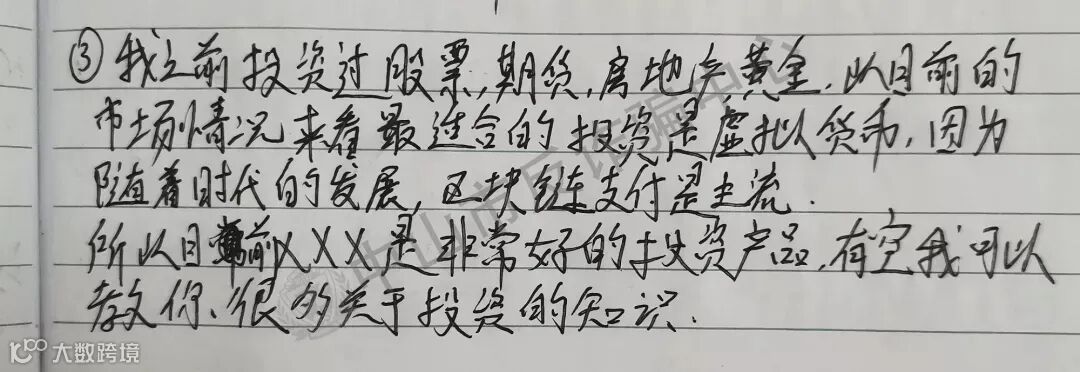 ③我之前投资过股票,期货,房地产,黄金.以目前的
市场情况来看最适合的投资是虚拟货币,因为
随着时代的发展,区块链支付是主流.
所以目前XXX是非常好的投资产品,有空我可以
教你、很多关于投资的知识.
中山市反诈骗中心
大数跨境